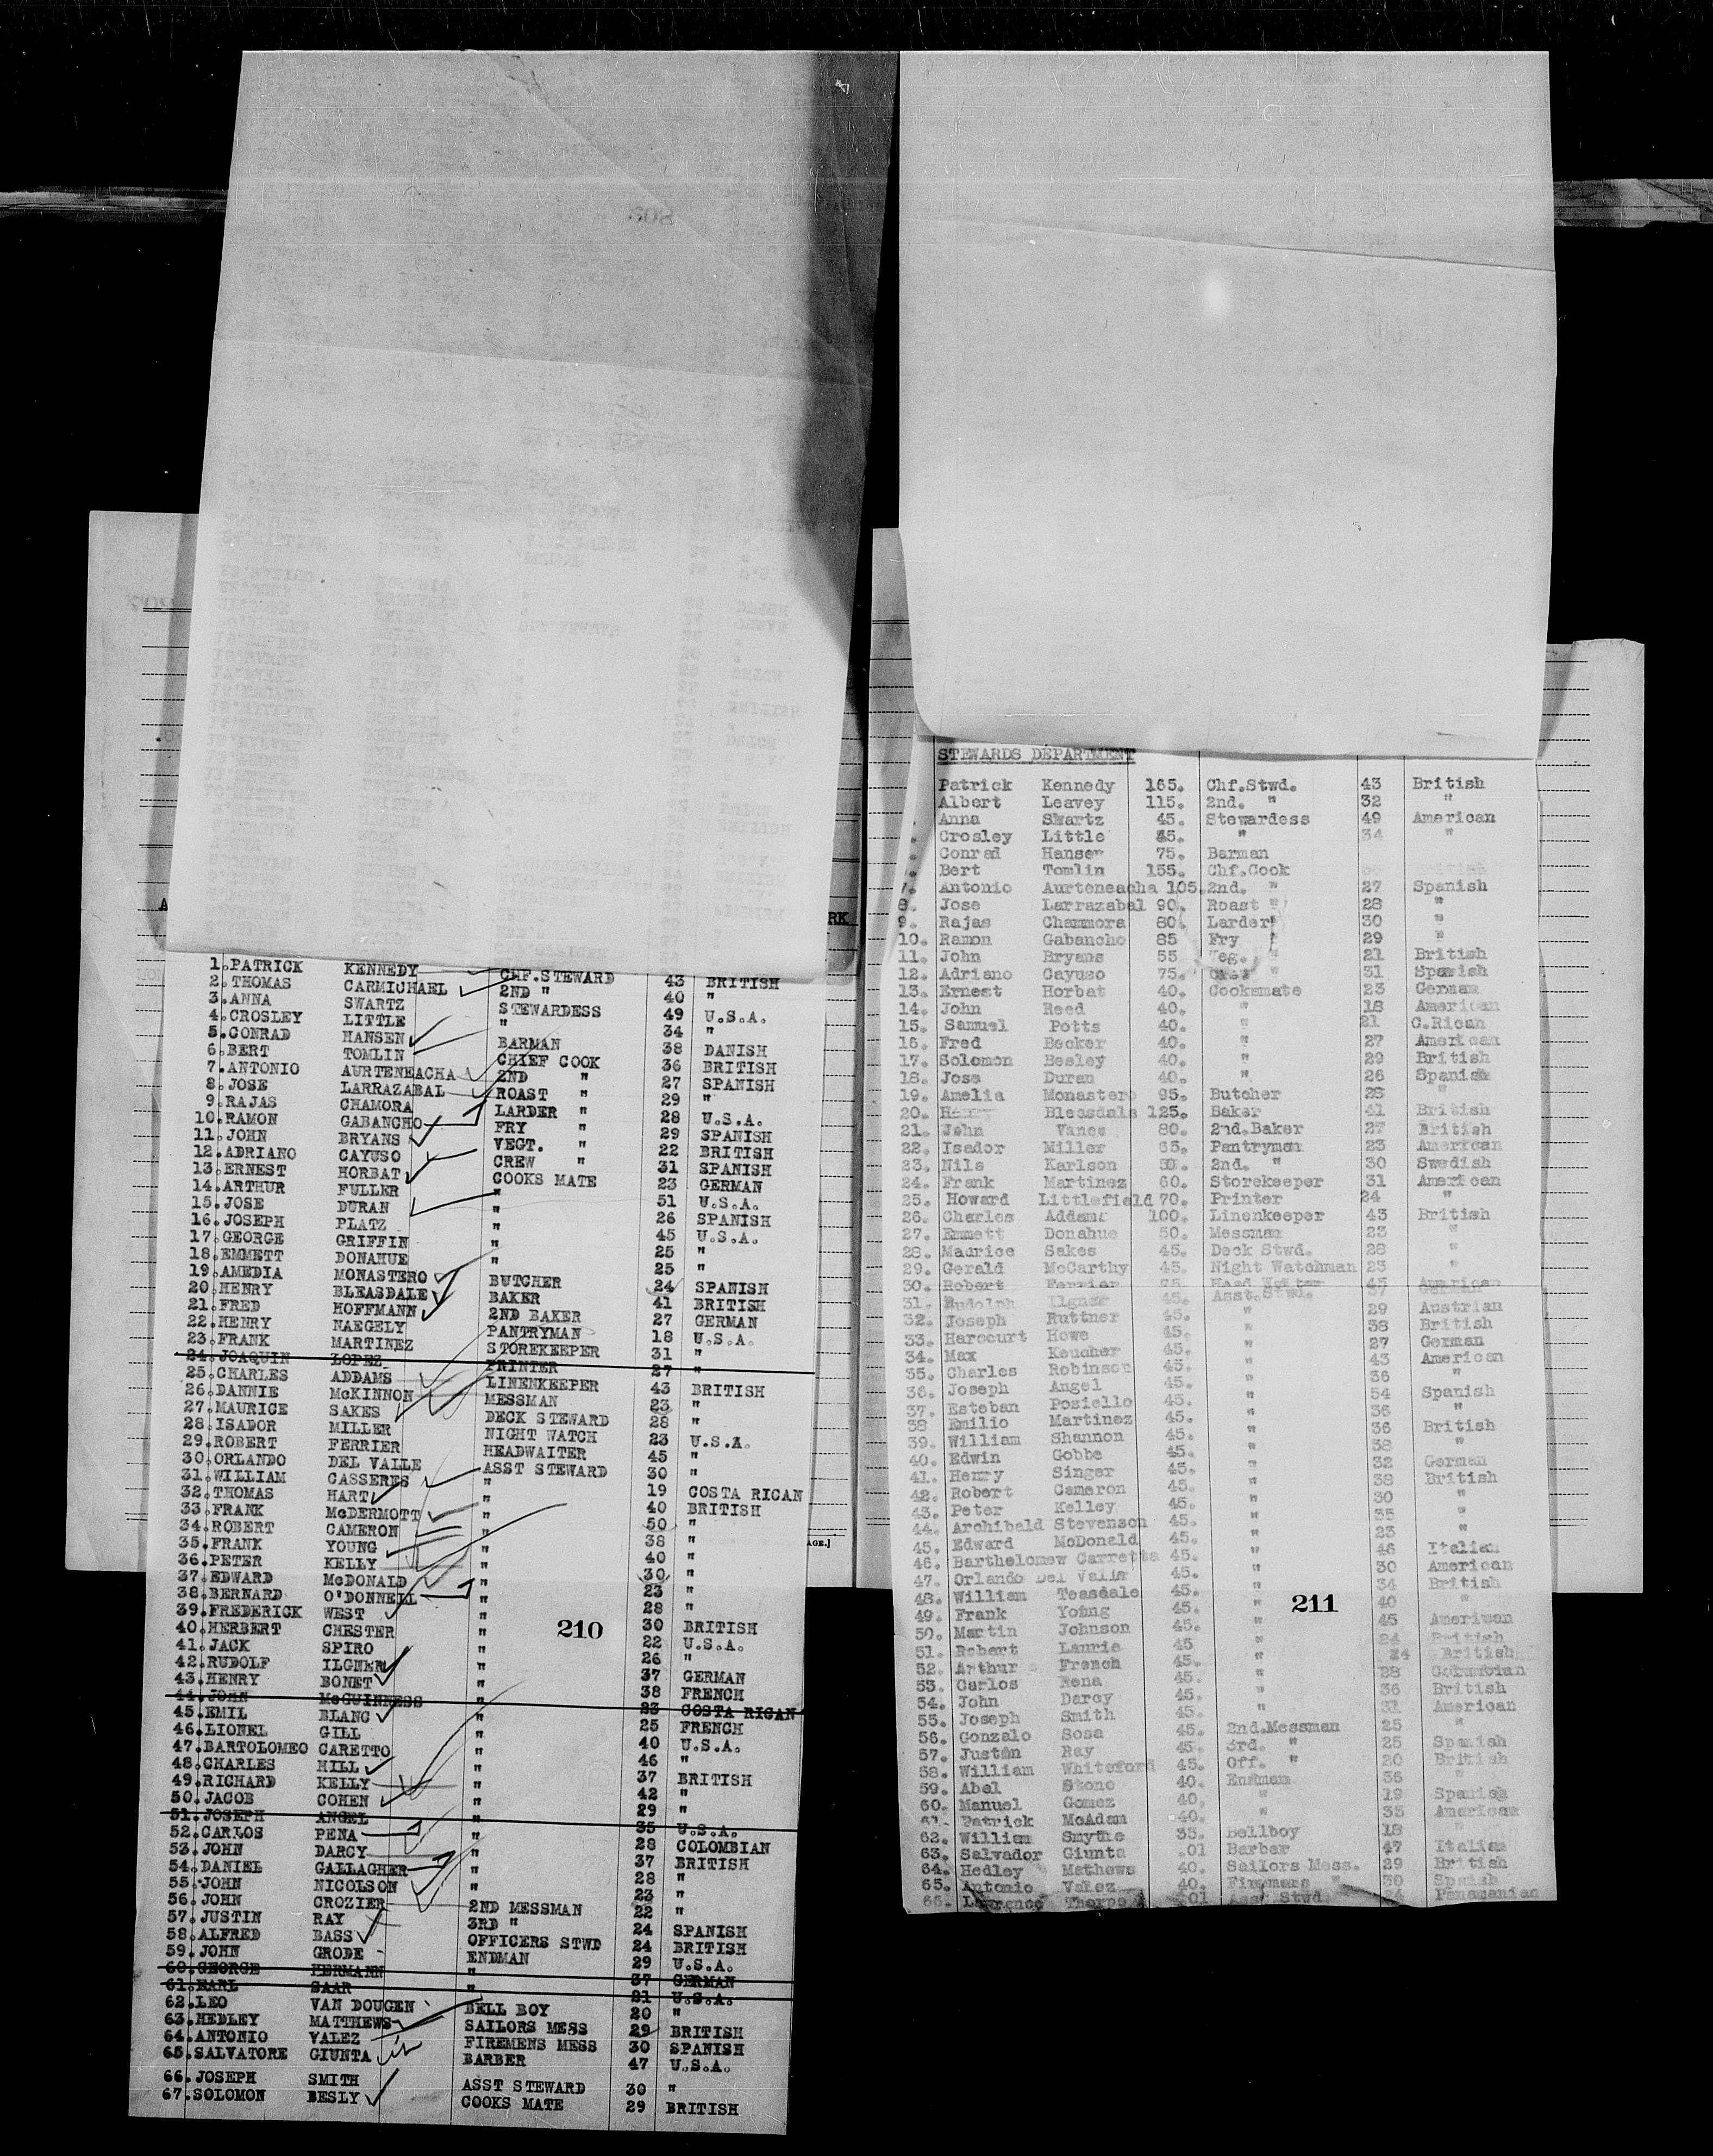 1.PATRICK KENNEDY CHF.STEWARD 43 BRITISH
2.THOMAS CARMICHAEL 2ND " 40 "
3.ANNA SWARTZ STEWARDESS 49 U.S.A.
4.CROSLEY LITTLE " 34 "
5.CONRAD HANSEN BARMAN 38 DANISH
6.BERT TOMLIN CHIEF COOK 36 BRITISH
7.ANTONIO AURTENEACHA 2ND " 27 SPANISH
8.JOSE LARRAZABAL ROAST " 29 "
9.RAJAS CHAMORA LARDER " 28 U.S.A.
10.RAMON GABANCHO FRY " 29 SPANISH
11.JOHN BRYANS VEGT. " 22 BRITISH
12.ADRIANO CAYUSO CREW " 31 SPANISH
13.ERNEST HORBAT COOKS MATE 23 GERMAN
14.ARTHUR FULLER " 51 U.S.A.
15.JOSE DURAN " 26 SPANISH
16.JOSEPH PLATZ " 45 U.S.A.
17.GEORGE GRIFFIN " 25 "
18.EMMETT DONAHUE " 25 "
19.AMEDIA MONASTERO BUTCHER 24 SPANISH
20.HENRY BLEASDALE BAKER 41 BRITISH
21.FRED HOFFMANN 2ND BAKER 27 GERMAN
22.HENRY NAEGELY PANTRYMAN 18 U.S.A.
23.FRANK MARTINEZ STOREKEEPER 31 "
24.JOAQUIN LOPEZ PRINTER 27 "
25.CHARLES ADDAMS LINENKEEPER 43 BRITISH
26.DANNIE McKINNON MESSMAN 23 "
27.MAURICE SAKES DECK STEWARD 28 "
28.ISADOR MILLER NIGHT WATCH 23 U.S.A.
29.ROBERT FERRIER HEADWAITER 45 "
30.ORLANDO DEL VALLE ASST STEWARD 30 "
31.WILLIAM CASSERES " 19 COSTA RICAN
32.THOMAS HART " 40 BRITISH
33.FRANK McDERMOTT " 50 "
34.ROBERT CAMERON " 38 "
35.FRANK YOUNG " 40 "
36.PETER KELLY " 30 "
37.EDWARD McDONALD " 23 "
38.BERNARD O'DONNELL " 28 "
39.FREDERICK WEST " 30 BRITISH
40.HERBERT CHESTER " 22 U.S.A.
41.JACK SPIRO " 26 "
42.RUDOLF ILGNER " 37 GERMAN
43.HENRY BONET " 38 FRENCH
44.JOHN McGUINNESS " 23 COSTA RICAN
45.EMIL BLANC " 25 FRENCH
46.LIONEL GILL " 40 U.S.A.
47.BARTOLOMEO CARETTO " 46 "
48.CHARLES HILL " 37 BRITISH
49.RICHARD KELLY " 42 "
50.JACOB COHEN " 29 "
51.JOSEPH ANGEL " 35 U.S.A.
52.CARLOS PENA " 28 COLOMBIAN
53.JOHN DARCY " 37 BRITISH
54.DANIEL GALLAGHER " 28 "
55.JOHN NICOLSON " 23 "
56.JOHN CROZIER 2ND MESSMAN 22 "
57.JUSTIN RAY 3RD " 24 SPANISH
58.ALFRED BASS OFFICERS STWD 24 BRITISH
59.JOHN GRODE ENDMAN 29 U.S.A.
60.GEORGE HERMANN " 37 GERMAN
61.EARL SAAR " 21 U.S.A.
62.LEO VAN DOUGEN BELL BOY 20 "
63.HEDLEY MATTHEWS SAILORS MESS 29 BRITISH
64.ANTONIO VALEZ FIREMENS MESS 30 SPANISH
65.SALVATORE GIUNTA BARBER 47 U.S.A.
66.JOSEPH SMITH ASST STEWARD 30 "
67.SOLOMON BESLY COOKS MATE 29 BRITISH
210
RK
AGE.]
STEWARDS DEPARTMENT
Patrick Kennedy 165. Chf.Stwd. 43 British
Albert Leavey 115. 2nd. " 32 "
Anna Swartz 45. Stewardess 49 American
Crosley Little 45. " 34 "
Conrad Hansen 75. Barman
Bert Tomlin 155. Chf.Cook
7. Antonio Aurteneacha 105. 2nd. " 27 Spanish
8. Jose Larrazabal 90. Roast " 28 "
9. Rajas Chammora 80. Larder " 30 "
10. Ramon Gabancho 85 Fry " 29 "
11. John Bryans 55 Veg. " 21 British
12. Adriano Cayuso 75. " 31 Spanish
13. Ernest Horbat 40. Cooksmate 23 German
14. John Reed 40. " 18 American
15. Samuel Potts 40. " 21 C.Rican
16. Fred Becker 40. " 27 American
17. Solomon Besley 40. " 29 British
18. Jose Duran 40. " 26 Spanish
19. Amelia Monastero 95. Butcher 28 "
20. Henry Bleasdale 125. Baker 41 British
21. John Vance 80. 2nd.Baker 27 British
22. Isador Miller 65. Pantryman 23 American
23. Nils Karlson 50. 2nd. " 30 Swedish
24. Frank Martinez 60. Storekeeper 31 American
25. Howard Littlefield 70. Printer 24 "
26. Charles Addams 100. Linenkeeper 43 British
27. Emmett Donahue 50. Messman 23 "
28. Maurice Sakes 45. Deck Stwd. 28 "
29. Gerald McCarthy 45. Night Watchman 23 "
30. Robert Ferrier 75. Head Waiter 45 American
31. Rudolph Ilgner 45. Asst.Stwd. 37 German
32. Joseph Ruttner 45. " 29 Austrian
33. Harocurt Howe 45. " 38 British
34. Max Keucher 45. " 27 German
35. Charles Robinson 45. " 43 American
36. Joseph Angel 45. " 36 "
37. Esteban Posiello 45. " 54 Spanish
38 Emilio Martinez 45. " 36 "
39. William Shannon 45. " 36 British
40. Edwin Gobbe 45. " 38 "
41. Henry Singer 45. " 32 German
42. Robert Cameron 45. " 38 British
43. Peter Kelley 45. " 30 "
44. Archibald Stevenson 45. " 35 "
45. Edward McDonald 45. " 23 "
46. Barthelomew Carretta 45. " 46 Italian
47. Orlando Del Valle 45. " 30 American
48. William Teasdale 45. " 34 British
49. Frank Young 45. " 40 "
50. Martin Johnson 45. " 45 Ameriwan
51. Robert Laurie 45 " 24 British
52. Arthur French 45. " 24 British
53. Carlos Rena 45. " 28 Columbian
54. John Darcy 45. " 36 British
55. Joseph Smith 45. " 31 American
56. Gonzalo Sosa 45. 2nd.Messman 25 "
57. Justin Ray 45. 3rd. " 25 Spanish
58. William Whiteford 45. Off. " 20 British
59. Abel Stone 40. Endman 36 "
60. Manuel Gomez 40. " 19 Spanish
61. Patrick McAdam 40. " 35 American
62. William Smythe 35. Bellboy 18 "
63. Salvador Giunta .01 Barber 47 Italian
64. Hedley Mathews 40. Sailors Mess. 29 British
65. Antonio Valez 40. Firemans " 30 Spanish
66. Lawrence Thorpe .01 Asst Stwd. Panamanian
211